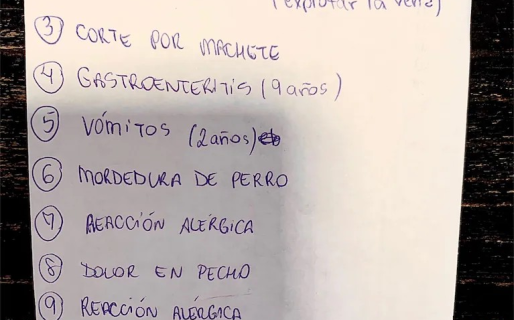 (explotar la vena)
③ CORTE POR MACHETE
④ GASTROENTERITIS (9 años)
⑤ VÓMITOS (2 años)
⑥ MORDEDURA DE PERRO
⑦ REACCIÓN ALÉRGICA
⑧ DOLOR EN PECHO
⑨ REACCIÓN ALÉRGICA